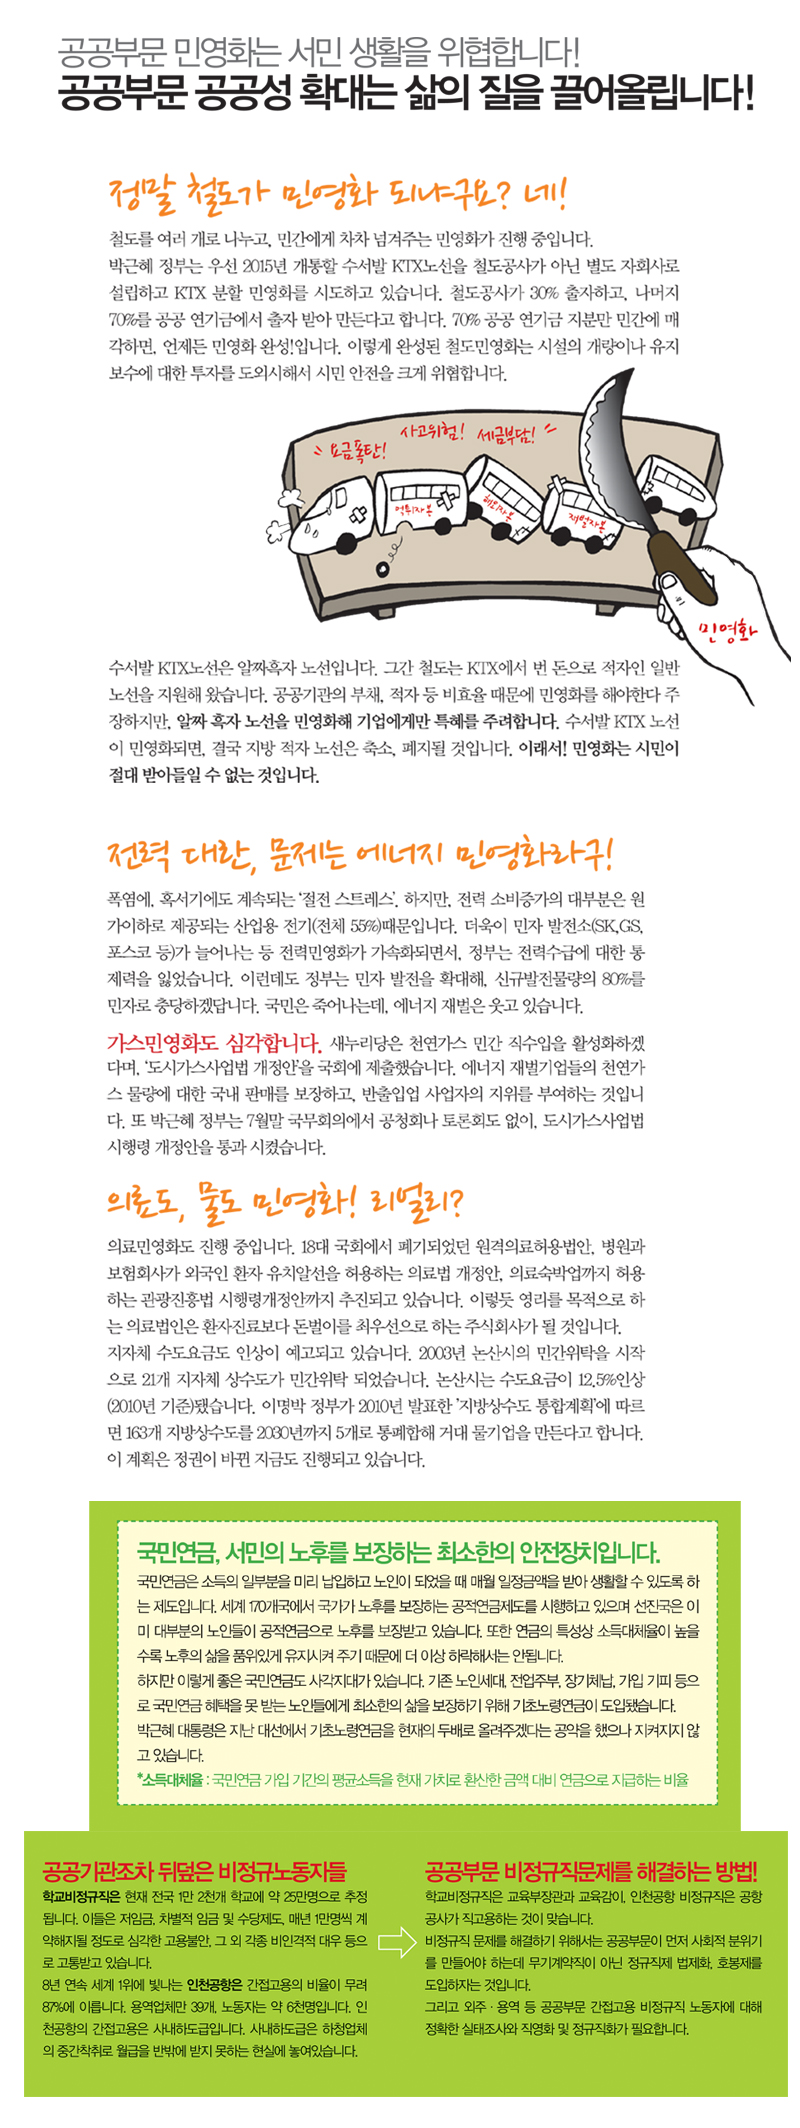 공공부문 민영화는 서민 생활을 위협합니다!
공공부문 공공성 확대는 삶의 질을 끌어올립니다!
정말 철도가 민영화 되냐구요? 네!
철도를 여러 개로 나누고, 민간에게 차차 넘겨주는 민영화가 진행 중입니다.
박근혜 정부는 우선 2015년 개통할 수서발 KTX노선을 철도공사가 아닌 별도 자회사로
설립하고 KTX 분할 민영화를 시도하고 있습니다. 철도공사가 30% 출자하고, 나머지
70%를 공공 연기금에서 출자 받아 만든다고 합니다. 70% 공공 연기금 지분만 민간에 매
각하면, 언제든 민영화 완성!입니다. 이렇게 완성된 철도민영화는 시설의 개량이나 유지
보수에 대한 투자를 도외시해서 시민 안전을 크게 위협합니다.
요금폭탄!
사고위험!
세금부담!
먹튀자본
해외자본
재벌자본
민영화
수서발 KTX노선은 알짜흑자 노선입니다. 그간 철도는 KTX에서 번 돈으로 적자인 일반
노선을 지원해 왔습니다. 공공기관의 부채, 적자 등 비효율 때문에 민영화를 해야한다 주
장하지만, 알짜 흑자 노선을 민영화해 기업에게만 특혜를 주려합니다. 수서발 KTX 노선
이 민영화되면, 결국 지방 적자 노선은 축소, 폐지될 것입니다. 이래서! 민영화는 시민이
절대 받아들일 수 없는 것입니다.
전력 대란, 문제는 에너지 민영화라구!
폭염에, 혹서기에도 계속되는 '절전 스트레스'. 하지만, 전력 소비증가의 대부분은 원
가이하로 제공되는 산업용 전기(전체 55%)때문입니다. 더욱이 민자 발전소(SK,GS,
포스코 등)가 늘어나는 등 전력민영화가 가속화되면서, 정부는 전력수급에 대한 통
제력을 잃었습니다. 이런데도 정부는 민자 발전을 확대해, 신규발전물량의 80%를
민자로 충당하겠답니다. 국민은 죽어나는데, 에너지 재벌은 웃고 있습니다.
가스민영화도 심각합니다. 새누리당은 천연가스 민간 직수입을 활성화하겠
다며, '도시가스사업법 개정안'을 국회에 제출했습니다. 에너지 재벌기업들의 천연가
스 물량에 대한 국내 판매를 보장하고, 반출입업 사업자의 지위를 부여하는 것입니
다. 또 박근혜 정부는 7월말 국무회의에서 공청회나 토론회도 없이, 도시가스사업법
시행령 개정안을 통과 시켰습니다.
의료도, 물도 민영화! 리얼리?
의료민영화도 진행 중입니다. 18대 국회에서 폐기되었던 원격의료허용법안, 병원과
보험회사가 외국인 환자 유치알선을 허용하는 의료법 개정안, 의료숙박업까지 허용
하는 관광진흥법 시행령개정안까지 추진되고 있습니다. 이렇듯 영리를 목적으로 하
는 의료법인은 환자진료보다 돈벌이를 최우선으로 하는 주식회사가 될 것입니다.
지자체 수도요금도 인상이 예고되고 있습니다. 2003년 논산시의 민간위탁을 시작
으로 21개 지자체 상수도가 민간위탁 되었습니다. 논산시는 수도요금이 12.5%인상
(2010년 기준)됐습니다. 이명박 정부가 2010년 발표한 '지방상수도 통합계획'에 따르
면 163개 지방상수도를 2030년까지 5개로 통폐합해 거대 물기업을 만든다고 합니다.
이 계획은 정권이 바뀐 지금도 진행되고 있습니다.
국민연금, 서민의 노후를 보장하는 최소한의 안전장치입니다.
국민연금은 소득의 일부분을 미리 납입하고 노인이 되었을 때 매월 일정금액을 받아 생활할 수 있도록 하
는 제도입니다. 세계 170개국에서 국가가 노후를 보장하는 공적연금제도를 시행하고 있으며 선진국은 이
미 대부분의 노인들이 공적연금으로 노후를 보장받고 있습니다. 또한 연금의 특성상 소득대체율이 높을
수록 노후의 삶을 품위있게 유지시켜 주기 때문에 더 이상 하락해서는 안됩니다.
하지만 이렇게 좋은 국민연금도 사각지대가 있습니다. 기존 노인세대, 전업주부, 장기체납, 가입 기피 등으
로 국민연금 혜택을 못 받는 노인들에게 최소한의 삶을 보장하기 위해 기초노령연금이 도입됐습니다.
박근혜 대통령은 지난 대선에서 기초노령연금을 현재의 두배로 올려주겠다는 공약을 했으나 지켜지지 않
고 있습니다.
*소득대체율 : 국민연금 가입 기간의 평균소득을 현재 가치로 환산한 금액 대비 연금으로 지급하는 비율
공공기관조차 뒤덮은 비정규노동자들
학교비정규직은 현재 전국 1만 2천개 학교에 약 25만명으로 추정
됩니다. 이들은 저임금, 차별적 임금 및 수당제도, 매년 1만명씩 계
약해지될 정도로 심각한 고용불안, 그 외 각종 비인격적 대우 등으
로 고통받고 있습니다.
8년 연속 세계 1위에 빛나는 인천공항은 간접고용의 비율이 무려
87%에 이릅니다. 용역업체만 39개, 노동자는 약 6천명입니다. 인
천공항의 간접고용은 사내하도급입니다. 사내하도급은 하청업체
의 중간착취로 월급을 반밖에 받지 못하는 현실에 놓여있습니다.
공공부문 비정규직문제를 해결하는 방법!
학교비정규직은 교육부장관과 교육감이, 인천공항 비정규직은 공항
공사가 직고용하는 것이 맞습니다.
비정규직 문제를 해결하기 위해서는 공공부문이 먼저 사회적 분위기
를 만들어야 하는데 무기계약직이 아닌 정규직제 법제화, 호봉제를
도입하자는 것입니다.
그리고 외주 · 용역 등 공공부문 간접고용 비정규직 노동자에 대해
정확한 실태조사와 직영화 및 정규직화가 필요합니다.